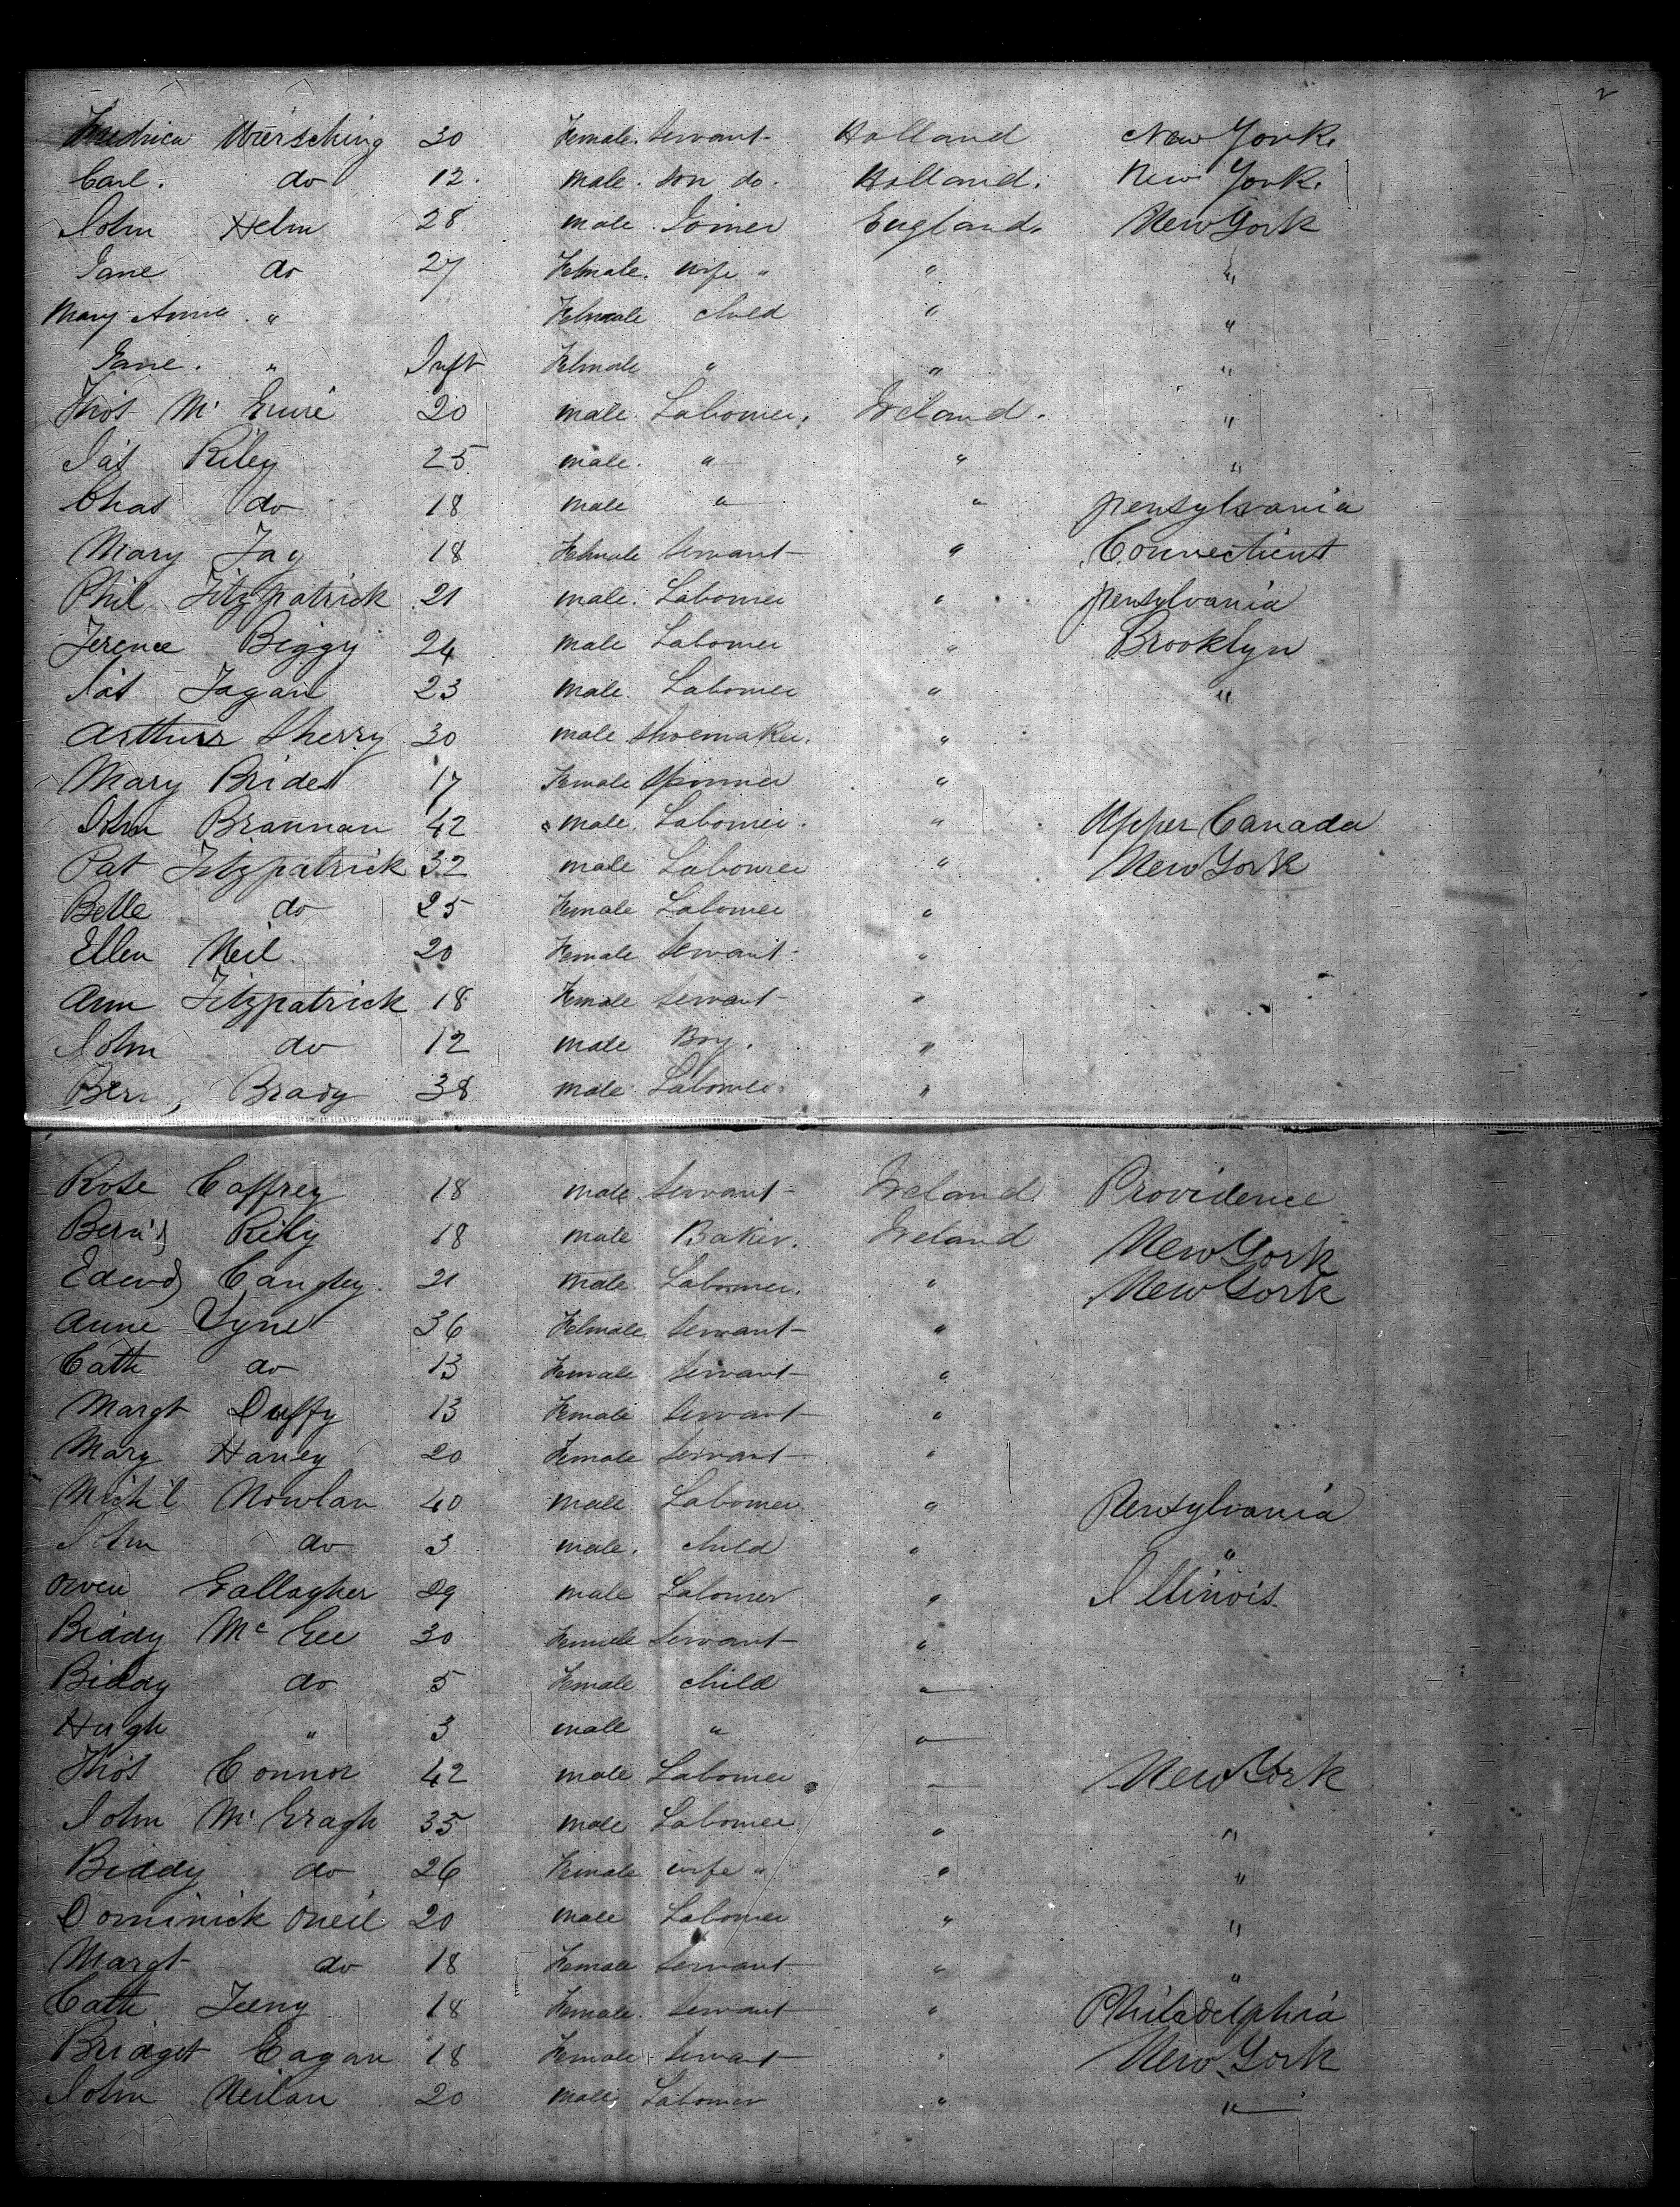 2
Fredrica Wiersching 30 Female. Servant Holland New York.
Carl. do 12. Male. son do. Holland. New York.
John Helm 28 male. Joiner England. New York
Jane do 27 Female. wife " " "
Mary Anne. " Female child " "
Jane. " Inft Female " " "
Thos Mc Guire 20 male. Labourer. Ireland. "
Jas Riley 25 male. " " "
Chas do 18 male " " pensylvania
Mary Fay 18 Female Servant " Connecticut
Phil Fitzpatrick 21 male. Labourer " pensylvania
Terence Biggy 24 male Labourer " Brooklyn
Jas Fagan 23 male. Labourer " "
Arthurr Sherry 30 male Shoemaker. "
Mary Brides 17 Female Spinner "
John Brannan 42 male. Labourer. " Upper Canada
Pat Fitzpatrick 32 male Labourer " New York
Belle do 25 Female Labourer "
Ellen Neil. 20 Female Servant "
Ann Fitzpatrick 18 Female Servant "
John do 12 male Boy. "
Bern, Brady 38 male. Labourer. "
Rose Caffrey 18 male Servant Ireland. Providence
Bern'd Rily 18 male Baker. Ireland New York
Edwd Cangley. 21 male. Labourer. " New York
Anne Lynes 36 Female Servant "
Cath do 13 Female Servant "
Margt Duffy 13 Female Servant "
Mary Haney 20 Female Servant "
Mich'l Nowlan 40 male. Labourer. " Pensylvania
John do 3 male. child " "
Owen Gallagher 29 male Labourer " Illinois.
Biddy Mc Gee 30 Female Servant "
Biddy do 5 Female child "
Hugh " 3 male " "
Thos Connor 42 male Labourer — New York
John Mc Gragh 35 male Labourer " "
Biddy do 26 Female wife " " "
Dominick Oneil 20 male Labourer " "
Margt do 18 Female Servant " "
Cath Feeny 18 Female. Servant " Philadelphia
Bridget Eagan 18 Female Servant " New York
John Neilan 20 male Labourer " "